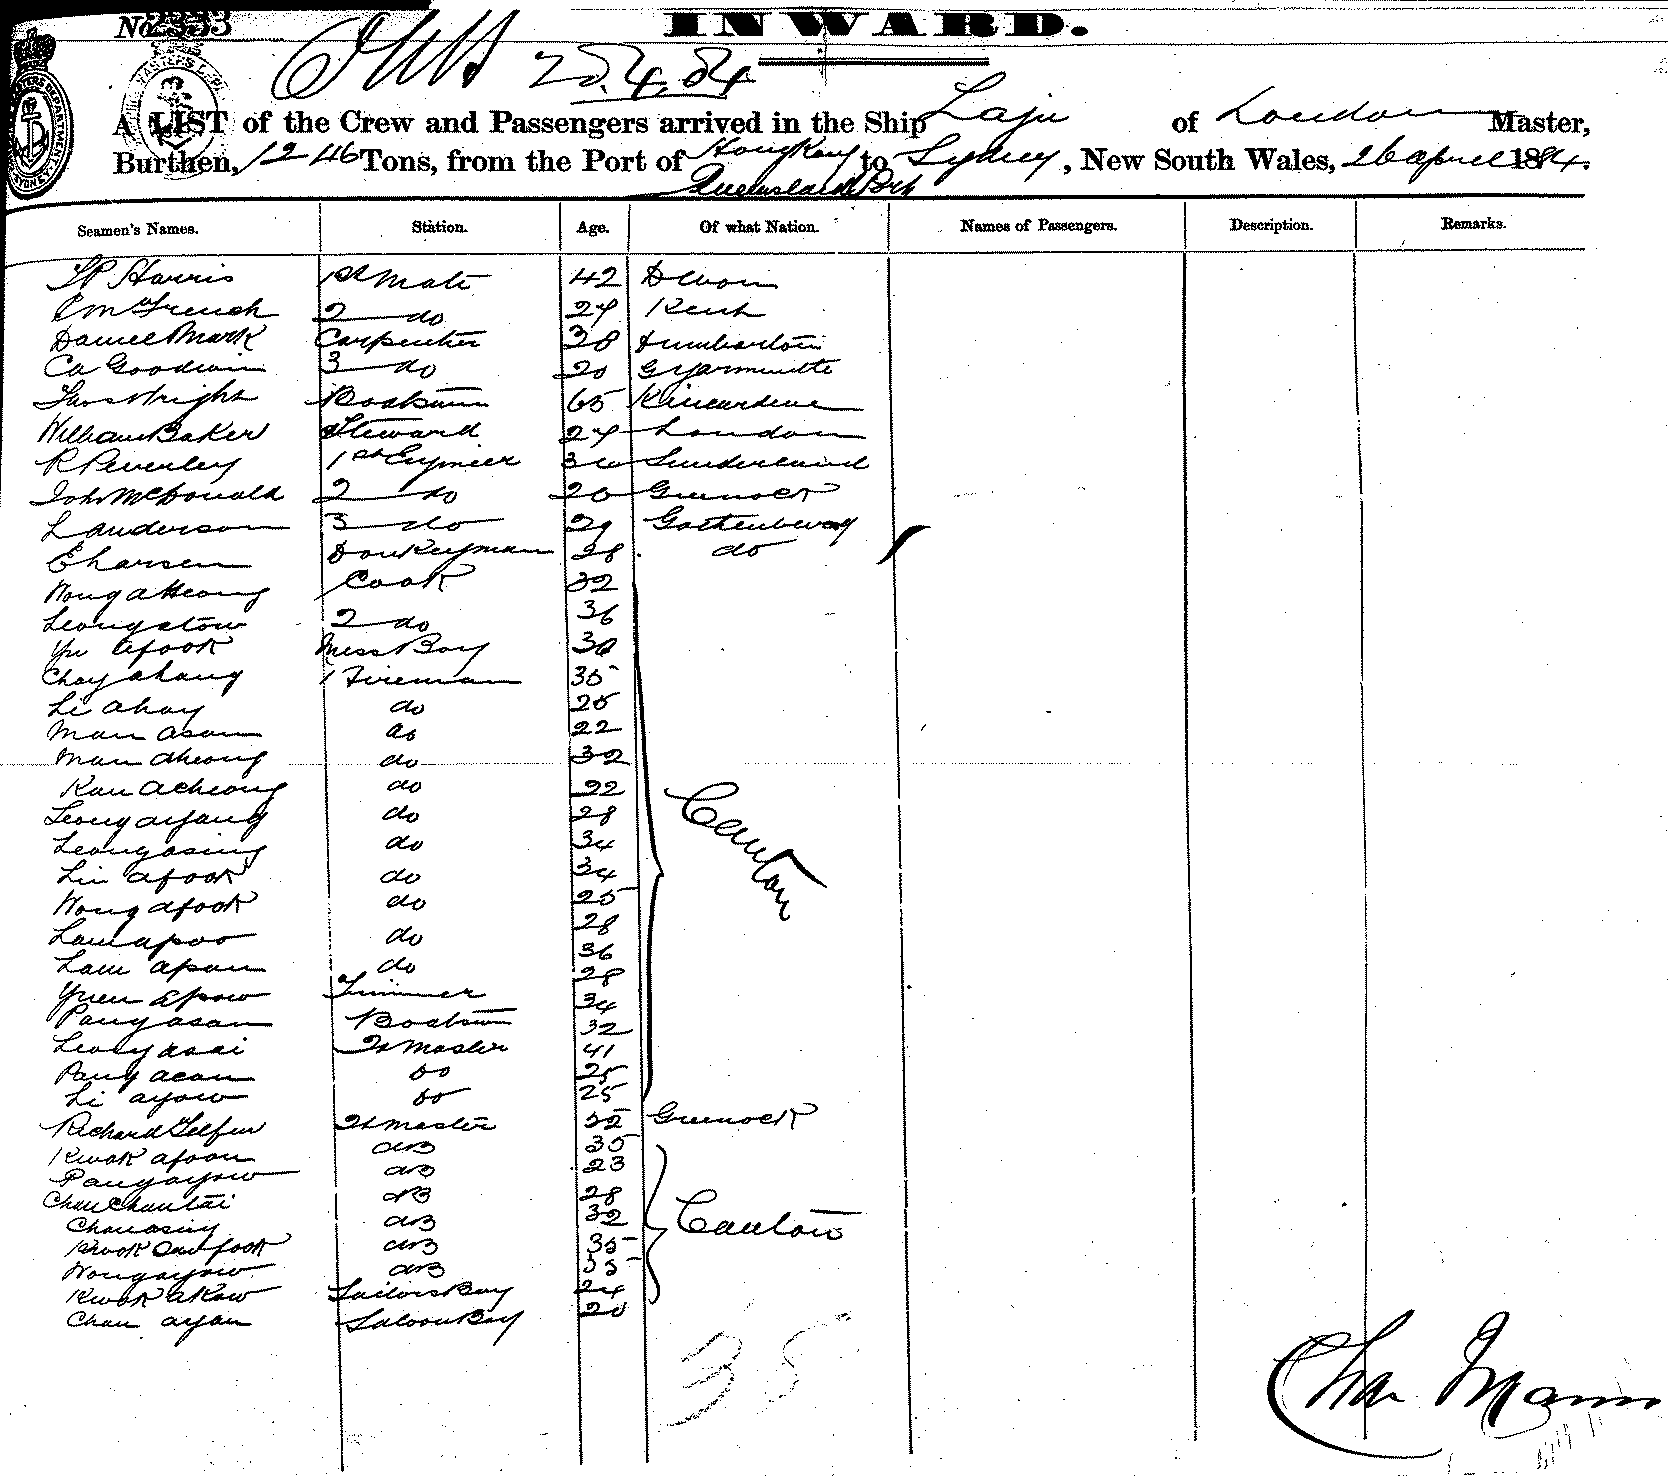 No 2333 INWARD.
28.4.84
A LIST of the Crew and Passengers arrived in the Ship Laju of London Master,
Burthen, 1246 Tons, from the Port of Hong Kong to Sydney, New South Wales, 26 April 1884.
Queensland
Seamen's Names. Station. Age. Of what Nation. Names of Passengers. Description. Remarks.
Harris 1st Mate 42 Devon
French 2 do 24 Kent
Daniel Mark Carpenter 38 Dumbarton
Goodwin 3 do 20
Thos Wright Boatswn 65 Kincardine
William Baker Steward 24 London
R Peverley 1st Engineer Sunderland
John McDonald 2 do 20 Greenock
L Anderson 3 do 29
E Larsen Donkeyman 28 do
Wong Aheong Cook 32
2 do 36
Yu Afook Mess Boy
Choy Ahang 1 Fireman 35
Li Ahoy do 25
Man Asam do 22
Man Aheong do 32
Kan Acheong do 22
Leong Ayang do 28
Leong Asing do 34
Lin Afook do 34
Wong Afook do 25
Lam Apoo do 28
Lam Apan do 36
Yuen Apow Trimmer 28
Pang Asam Boatswn 34
Leong Asai Qr Master 32
Pang Acan Do 41
Li Ayow Do 25
Canton
Richard Telfer Qr Master Greenock
Kwok Afoon AB 35
Pang Ayow AB 23
Chan Chantai AB 28
Chan Asing AB 32
Kwok Afook AB 35
Wong Ayow AB 35
Kwok Akow Sailors Boy 24
Chan Ayan Saloon Boy 20
Canton
35
Chas Mann